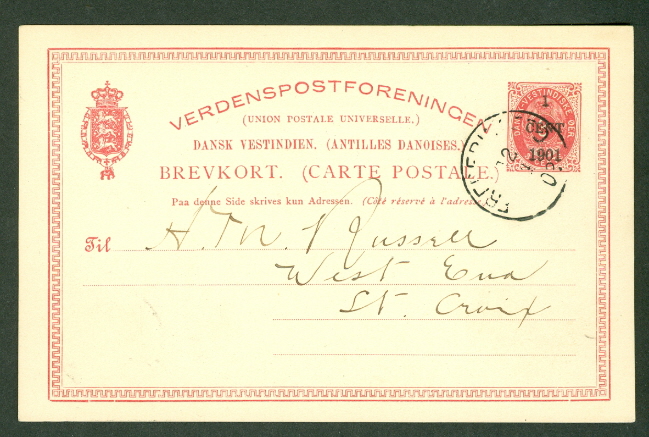 VERDENSPOSTFORENINGEN
(UNION POSTALE UNIVERSELLE.)
DANSK VESTINDIEN. (ANTILLES DANOISES.)
BREVKORT. (CARTE POSTALE.)
Paa denne Side skrives kun Adressen. (Côté réservé à l'adresse.)
1
CENT
1901
Til H. M. Russell
West End
St. Croix